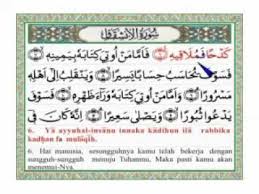 سُورَةُ الْاِنْشِقَاقِ
كَدْحًا فَمُلَٰقِيهِ فَأَمَّا مَنْ أُوتِيَ كِتَٰبَهُۥ بِيَمِينِهِۦ
فَسَوْفَ يُحَاسَبُ حِسَابًا يَسِيرًا وَيَنقَلِبُ إِلَىٰٓ أَهْلِهِۦ
مَسْرُورًا وَأَمَّا مَنْ أُوتِيَ كِتَٰبَهُۥ وَرَآءَ ظَهْرِهِۦ فَسَوْفَ
يَدْعُوا۟ ثُبُورًا وَيَصْلَىٰ سَعِيرًا
6. Yā ayyuhal-insānu innaka kādiḥun ilā rabbika
kadḥan fa mulāqīh.
6. Hai manusia, sesungguhnya kamu telah bekerja dengan
sungguh-sungguh menuju Tuhanmu, Maka pasti kamu akan
menemui-Nya.